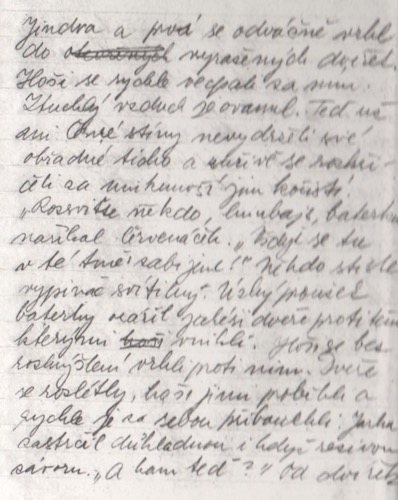 Jindra a prvý se odvážně vrhl
do vyražených dvířek.
Hoši se rychle vecpali za ním.
Ztuchlý vzduch je ovanul. Teď už
ani Černé stíny nevydržely své
obřadné ticho a zuřivě se rozkři-
čeli za unikající jim kořistí.
„Rozsviťte někdo, hrubaj, baterku
naříkal Červenáček. „Když se tu
v té tmě zabijem!" Někdo stiskl
vypínač svítilny. Úzký proužek
baterky ozářil jakési dveře proti těm
kterými vnikli. Hoši se bez
rozmýšlení vrhli proti nim. Dveře
se rozlétly, hoši jimi proběhli a
rychle je za sebou přibouchli. Jirka
zastrčil důkladnou i když rezivou
závoru. „A kam teď?" Od dvířek